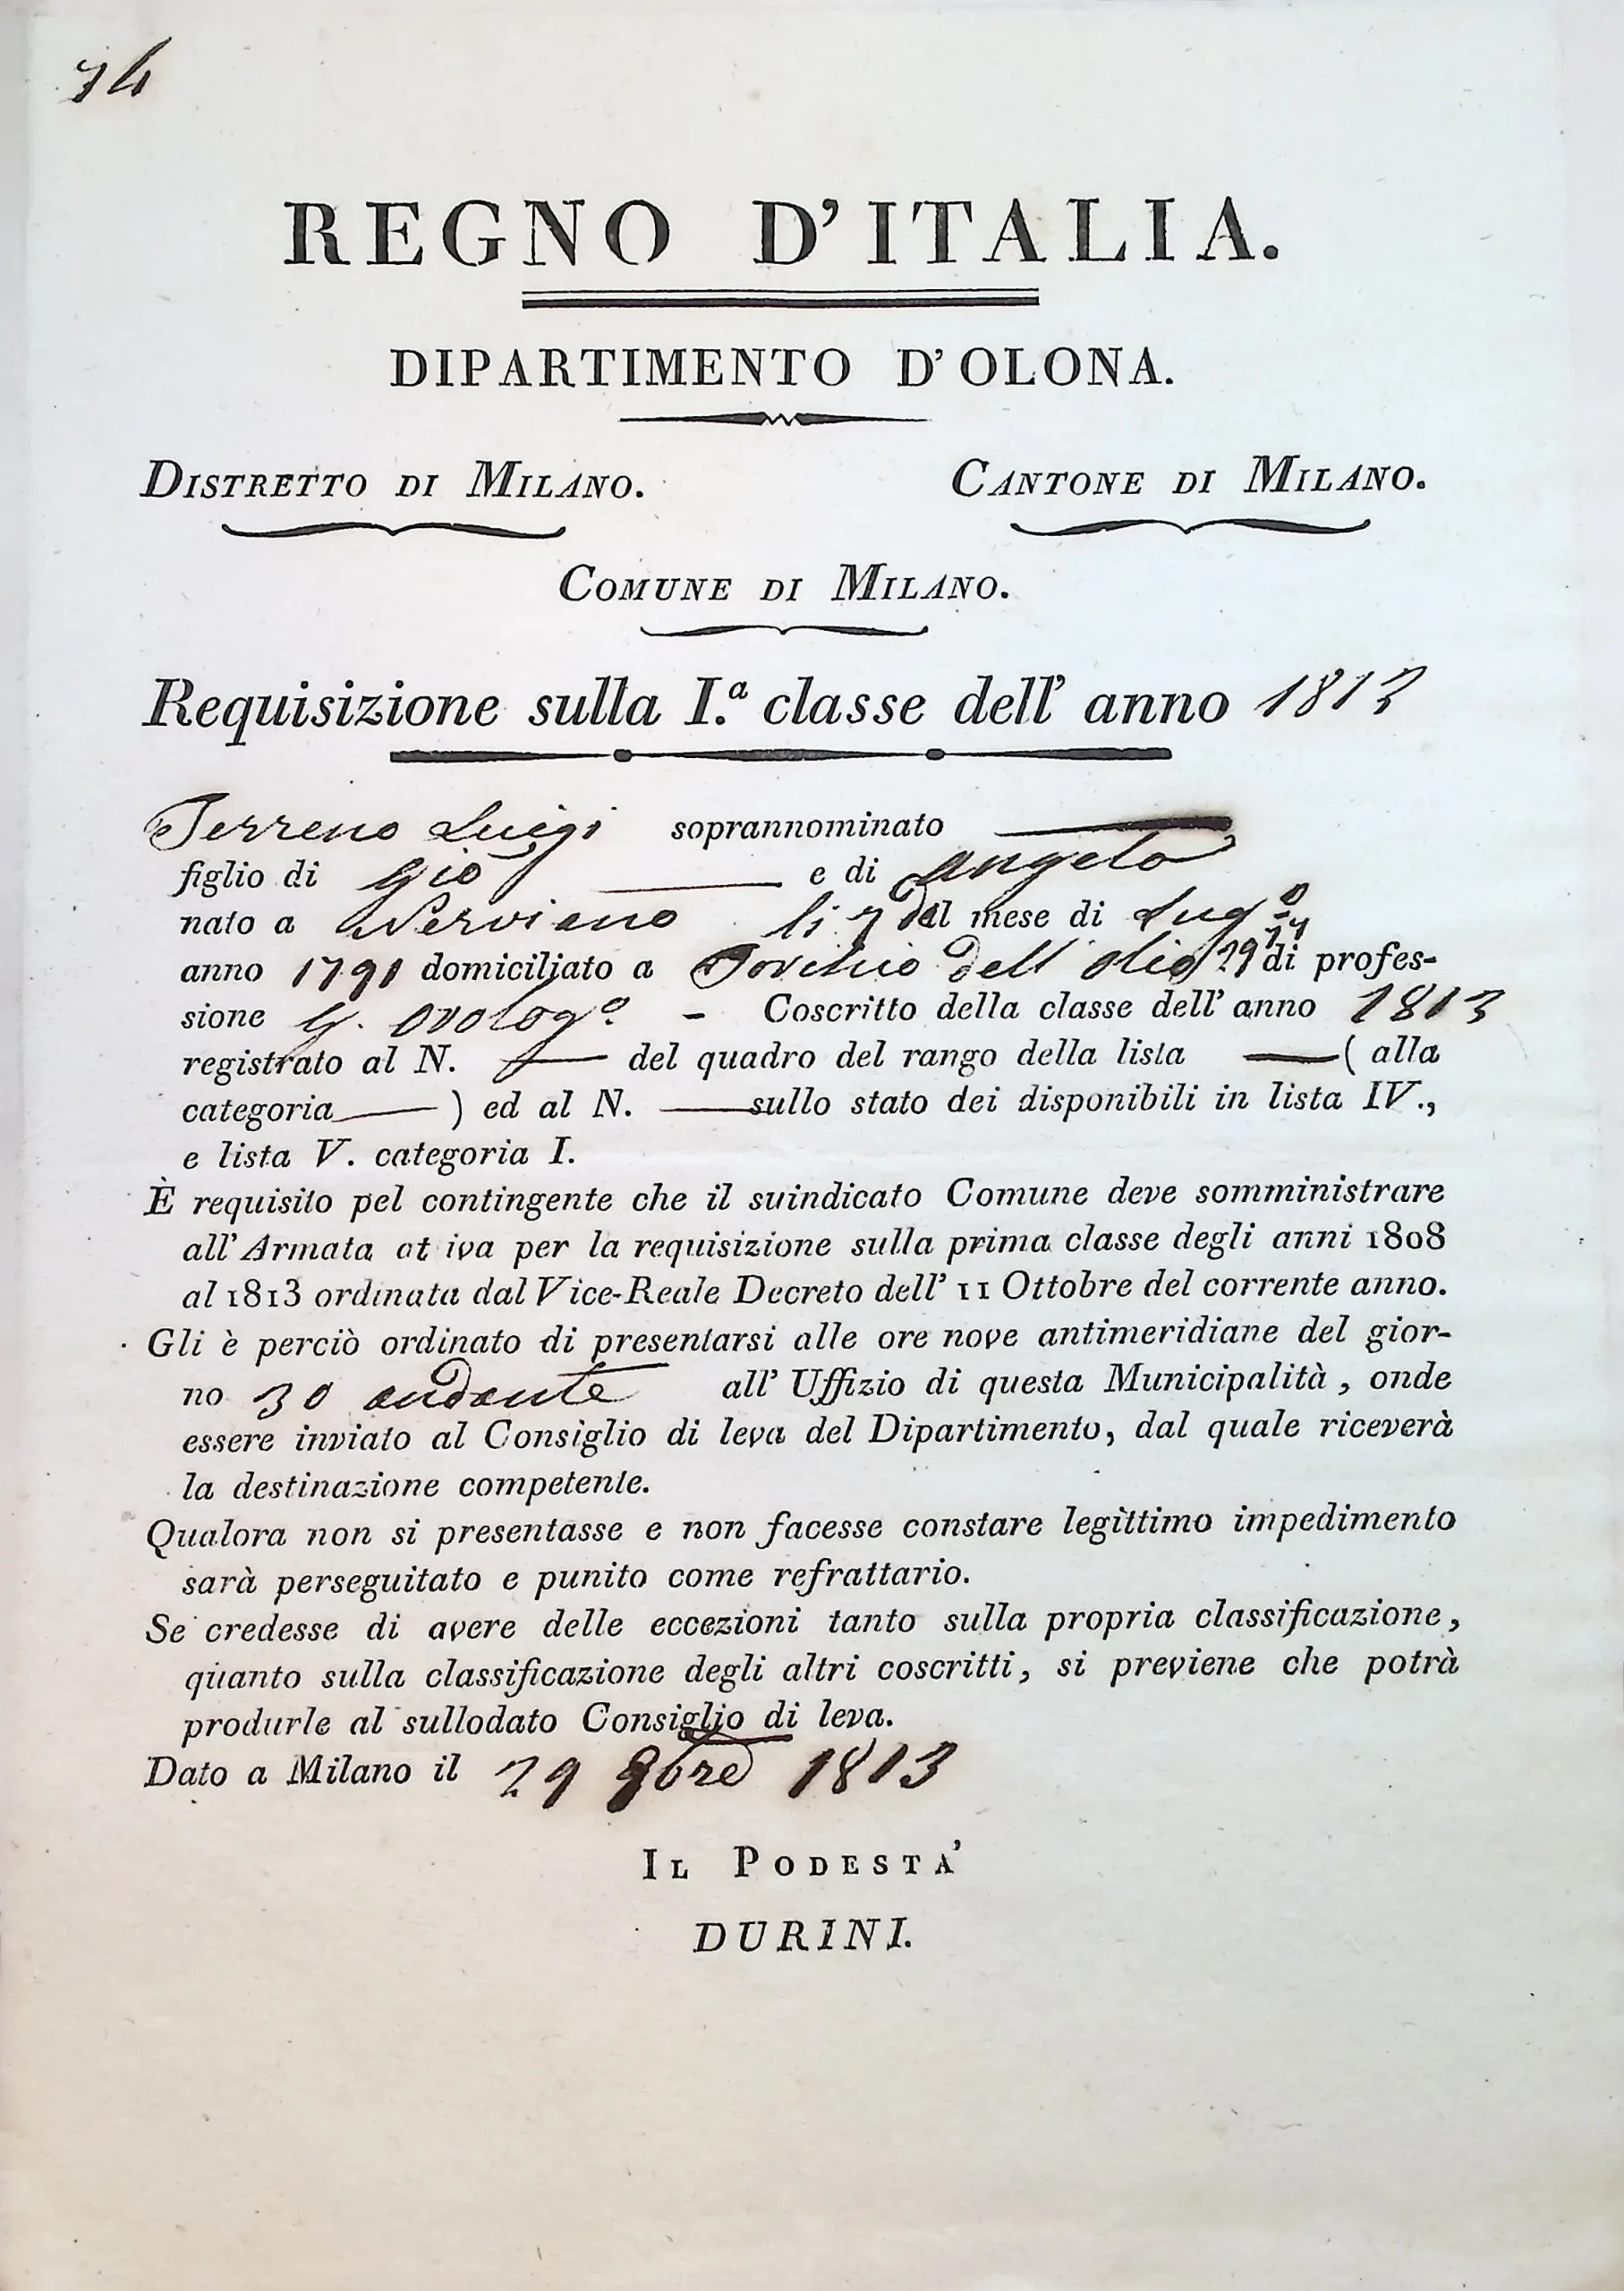 74
REGNO D'ITALIA.
DIPARTIMENTO D'OLONA.
DISTRETTO DI MILANO. CANTONE DI MILANO.
COMUNE DI MILANO.
Requisizione sulla I.ª classe dell' anno 1813
Terreno Luigi soprannominato
figlio di Gio e di Angela
nato a Nerviano li 7 del mese di Lug.o
anno 1791 domiciliato a dell' olio di profes-
sione G. Orolog.o - Coscritto della classe dell' anno 1813
registrato al N. del quadro del rango della lista ( alla
categoria ) ed al N. sullo stato dei disponibili in lista IV.,
e lista V. categoria I.
È requisito pel contingente che il suindicato Comune deve somministrare
all' Armata at iva per la requisizione sulla prima classe degli anni 1808
al 1813 ordinata dal Vice-Reale Decreto dell' 11 Ottobre del corrente anno.
Gli è perciò ordinato di presentarsi alle ore nove antimeridiane del gior-
no 30 andante all' Uffizio di questa Municipalità, onde
essere inviato al Consiglio di leva del Dipartimento, dal quale riceverà
la destinazione competente.
Qualora non si presentasse e non facesse constare legittimo impedimento
sarà perseguitato e punito come refrattario.
Se credesse di avere delle eccezioni tanto sulla propria classificazione,
quanto sulla classificazione degli altri coscritti, si previene che potrà
produrle al sullodato Consiglio di leva.
Dato a Milano il 29 9bre 1813
IL PODESTA'
DURINI.